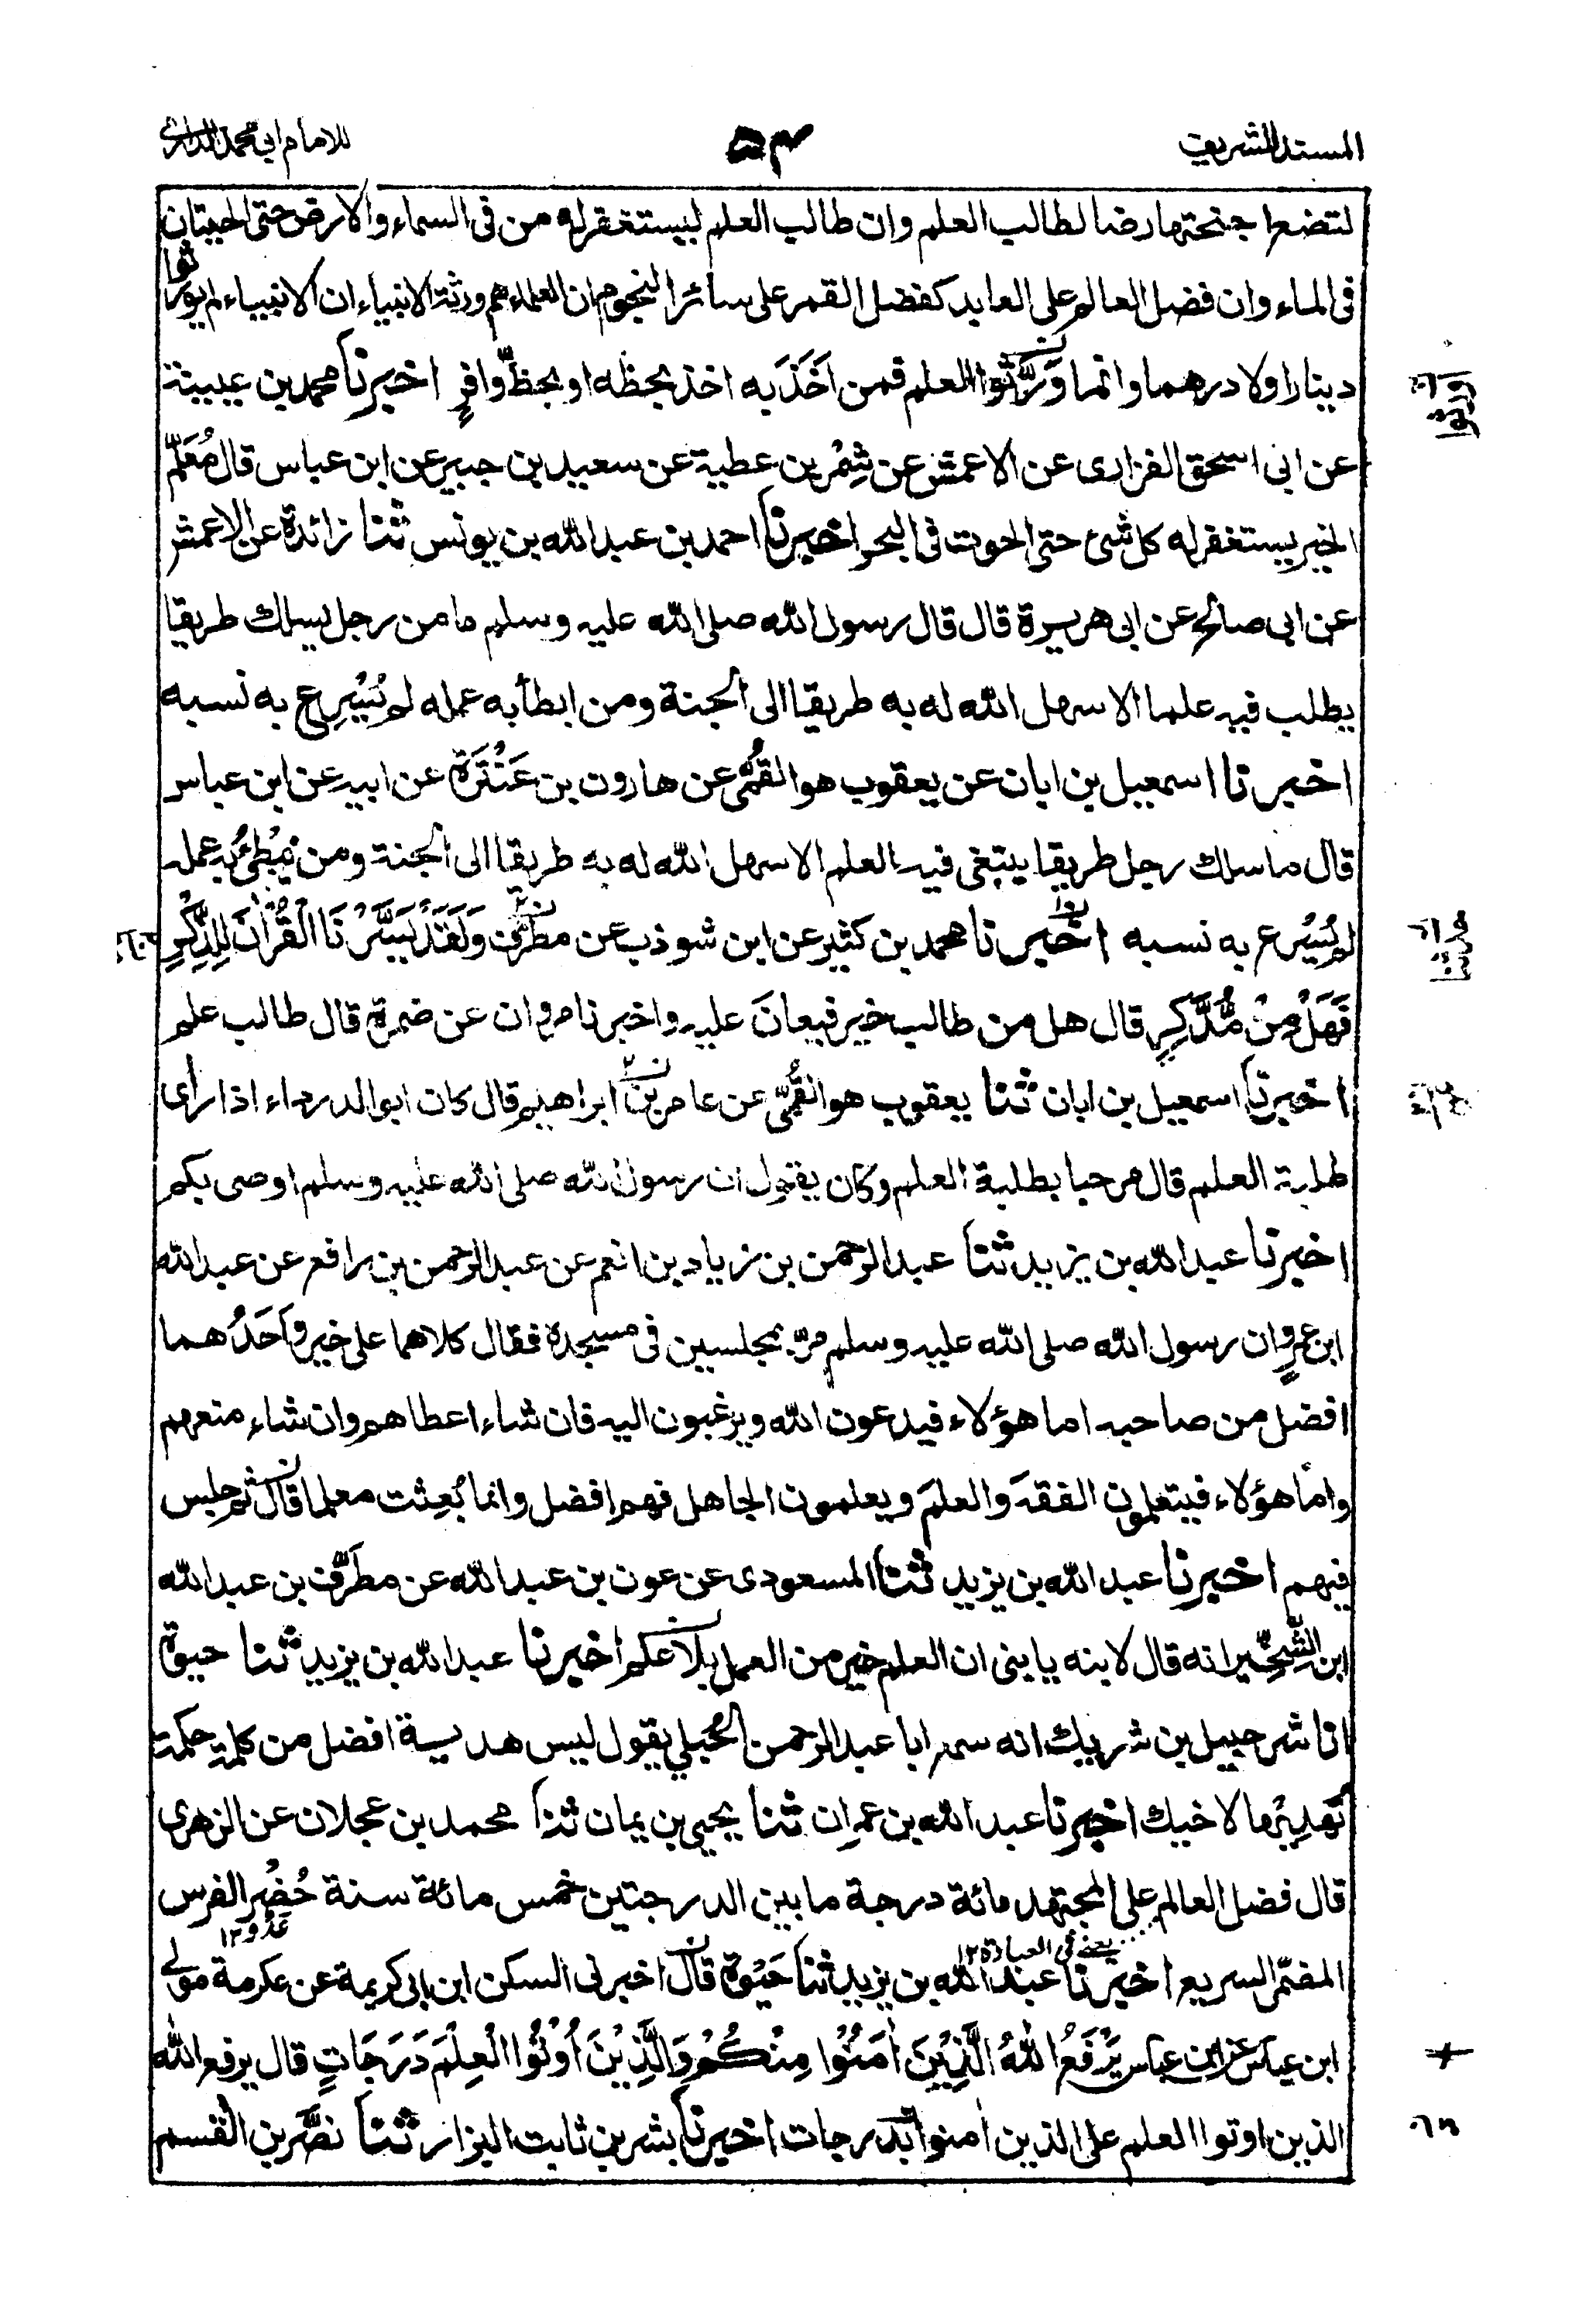 المسند الشريف
٥٣
للامام ابي محمد الدارمي
لتضع اجنحتها رضا لطالب العلم وان طالب العلم ليستغفر له من فى السماء والارض حتى الحيتان
فى الماء وان فضل العالم على العابد كفضل القمر على سائر النجوم ان العلماء هم ورثة الانبياء ان الانبياء لم يورثوا
دينارا ولا درهما وانما وَرَّثُوا العلم فمن اَخَذَ به اخذ بحظه او بحظّ وافرٍ اخبرنا محمد بن عيينة
عن ابى اسحق الفزارى عن الاعمش عن شِمْر بن عطية عن سعيد بن جبير عن ابن عباس قال مُعَلّم
الخير يستغفر له كل شئ حتى الحوت فى البحر اخبرنا احمد بن عبد الله بن يونس ثنا زائدة عن الاعمش
عن ابى صالح عن ابى هريرة قال قال رسول الله صلى الله عليه وسلم ما من رجل يسلك طريقا
يطلب فيه علما الا سهل الله له به طريقا الى الجنة ومن ابطأ به عمله لم يُسْرِع به نسبه
اخبرنا اسمعيل بن ابان عن يعقوب هو القُمّى عن هارون بن عَنْتَرَة عن ابيه عن ابن عباس
قال ما سلك رجل طريقا يبتغى فيه العلم الا سهل الله له به طريقا الى الجنة ومن يُبْطِئُ به عمله
لم يُسْرِع به نسبه اخبرنا محمد بن كثير عن ابن شوذب عن مطرّف وَلَقَدْ يَسَّرْنَا الْقُرْاٰنَ لِلذِّكْرِ
فَهَلْ مِنْ مُّدَّكِرٍ قال هل من طالب خير فيعانَ عليه واخبرنا مروان عن ضمرة قال طالب علم
اخبرنا اسمعيل بن ابان ثنا يعقوب هو القُمّى عن عامر بن ابراهيم قال كان ابو الدرداء اذا رأى
طلبة العلم قال مرحبا بطلبة العلم وكان يقول ان رسول الله صلى الله عليه وسلم اوصى بكم
اخبرنا عبد الله بن يزيد ثنا عبد الرحمن بن زياد بن انعم عن عبد الرحمن بن رافع عن عبد الله
ابن عمرٍو ان رسول الله صلى الله عليه وسلم مرّ بمجلسين فى مسجده فقال كلاهما على خير واَحَدُهما
افضل من صاحبه اما هؤلاء فيدعون الله ويرغبون اليه فان شاء اعطاهم وان شاء منعهم
واما هؤلاء فيتعلمون الفقهَ والعلمَ ويعلمون الجاهل فهم افضل وانما بُعِثت معلما قال ثم جلس
فيهم اخبرنا عبد الله بن يزيد ثنا المسعودى عن عون بن عبد الله عن مطرّف بن عبد الله
ابن الشِّخِّير انه قال لابنه يا بنى ان العلم خير من العمل بلا علم اخبرنا عبد الله بن يزيد ثنا حيوة
انا شرحبيل بن شريك انه سمع ابا عبد الرحمن الحُبَلى يقول ليس هدية افضل من كلمة حكمة
تُهْدِيْها لاخيك اخبرنا عبد الله بن عمران ثنا يحيى بن يمان ثنا محمد بن عجلان عن الزهرى
قال فضل العالم على المجتهد مائة درجة ما بين الدرجتين خمس مائة سنة حُضْر الفرس
يعنى فى العبادة ١٢
عَدْو ١٢
المضمّر السريع اخبرنا عبد الله بن يزيد ثنا حَيْوة قال اخبرنى السكن ابن ابى كريمة عن عكرمة مولى
ابن عباس عن ابن عباس يَرْفَعُ اللهُ الَّذِيْنَ اٰمَنُوْا مِنْكُمْ وَالَّذِيْنَ اُوْتُوا الْعِلْمَ دَرَجَاتٍ قال يرفع الله
الذين اوتوا العلم على الذين امنوا بدرجات اخبرنا بشر بن ثابت البزار ثنا نصر بن القسم